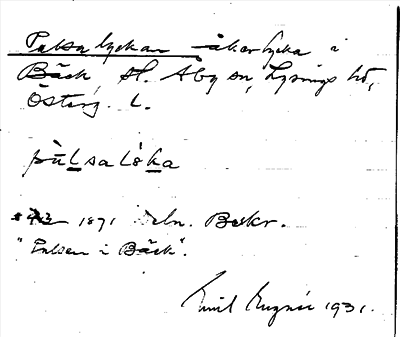 Pulsalyckan åkerlycka i
Bäck, St. Åby sn, Lysings hd,
Österg. L.
pùlsalỳka
1891 Beskr.
"Pulsen i Bäck".
Emil 1931.